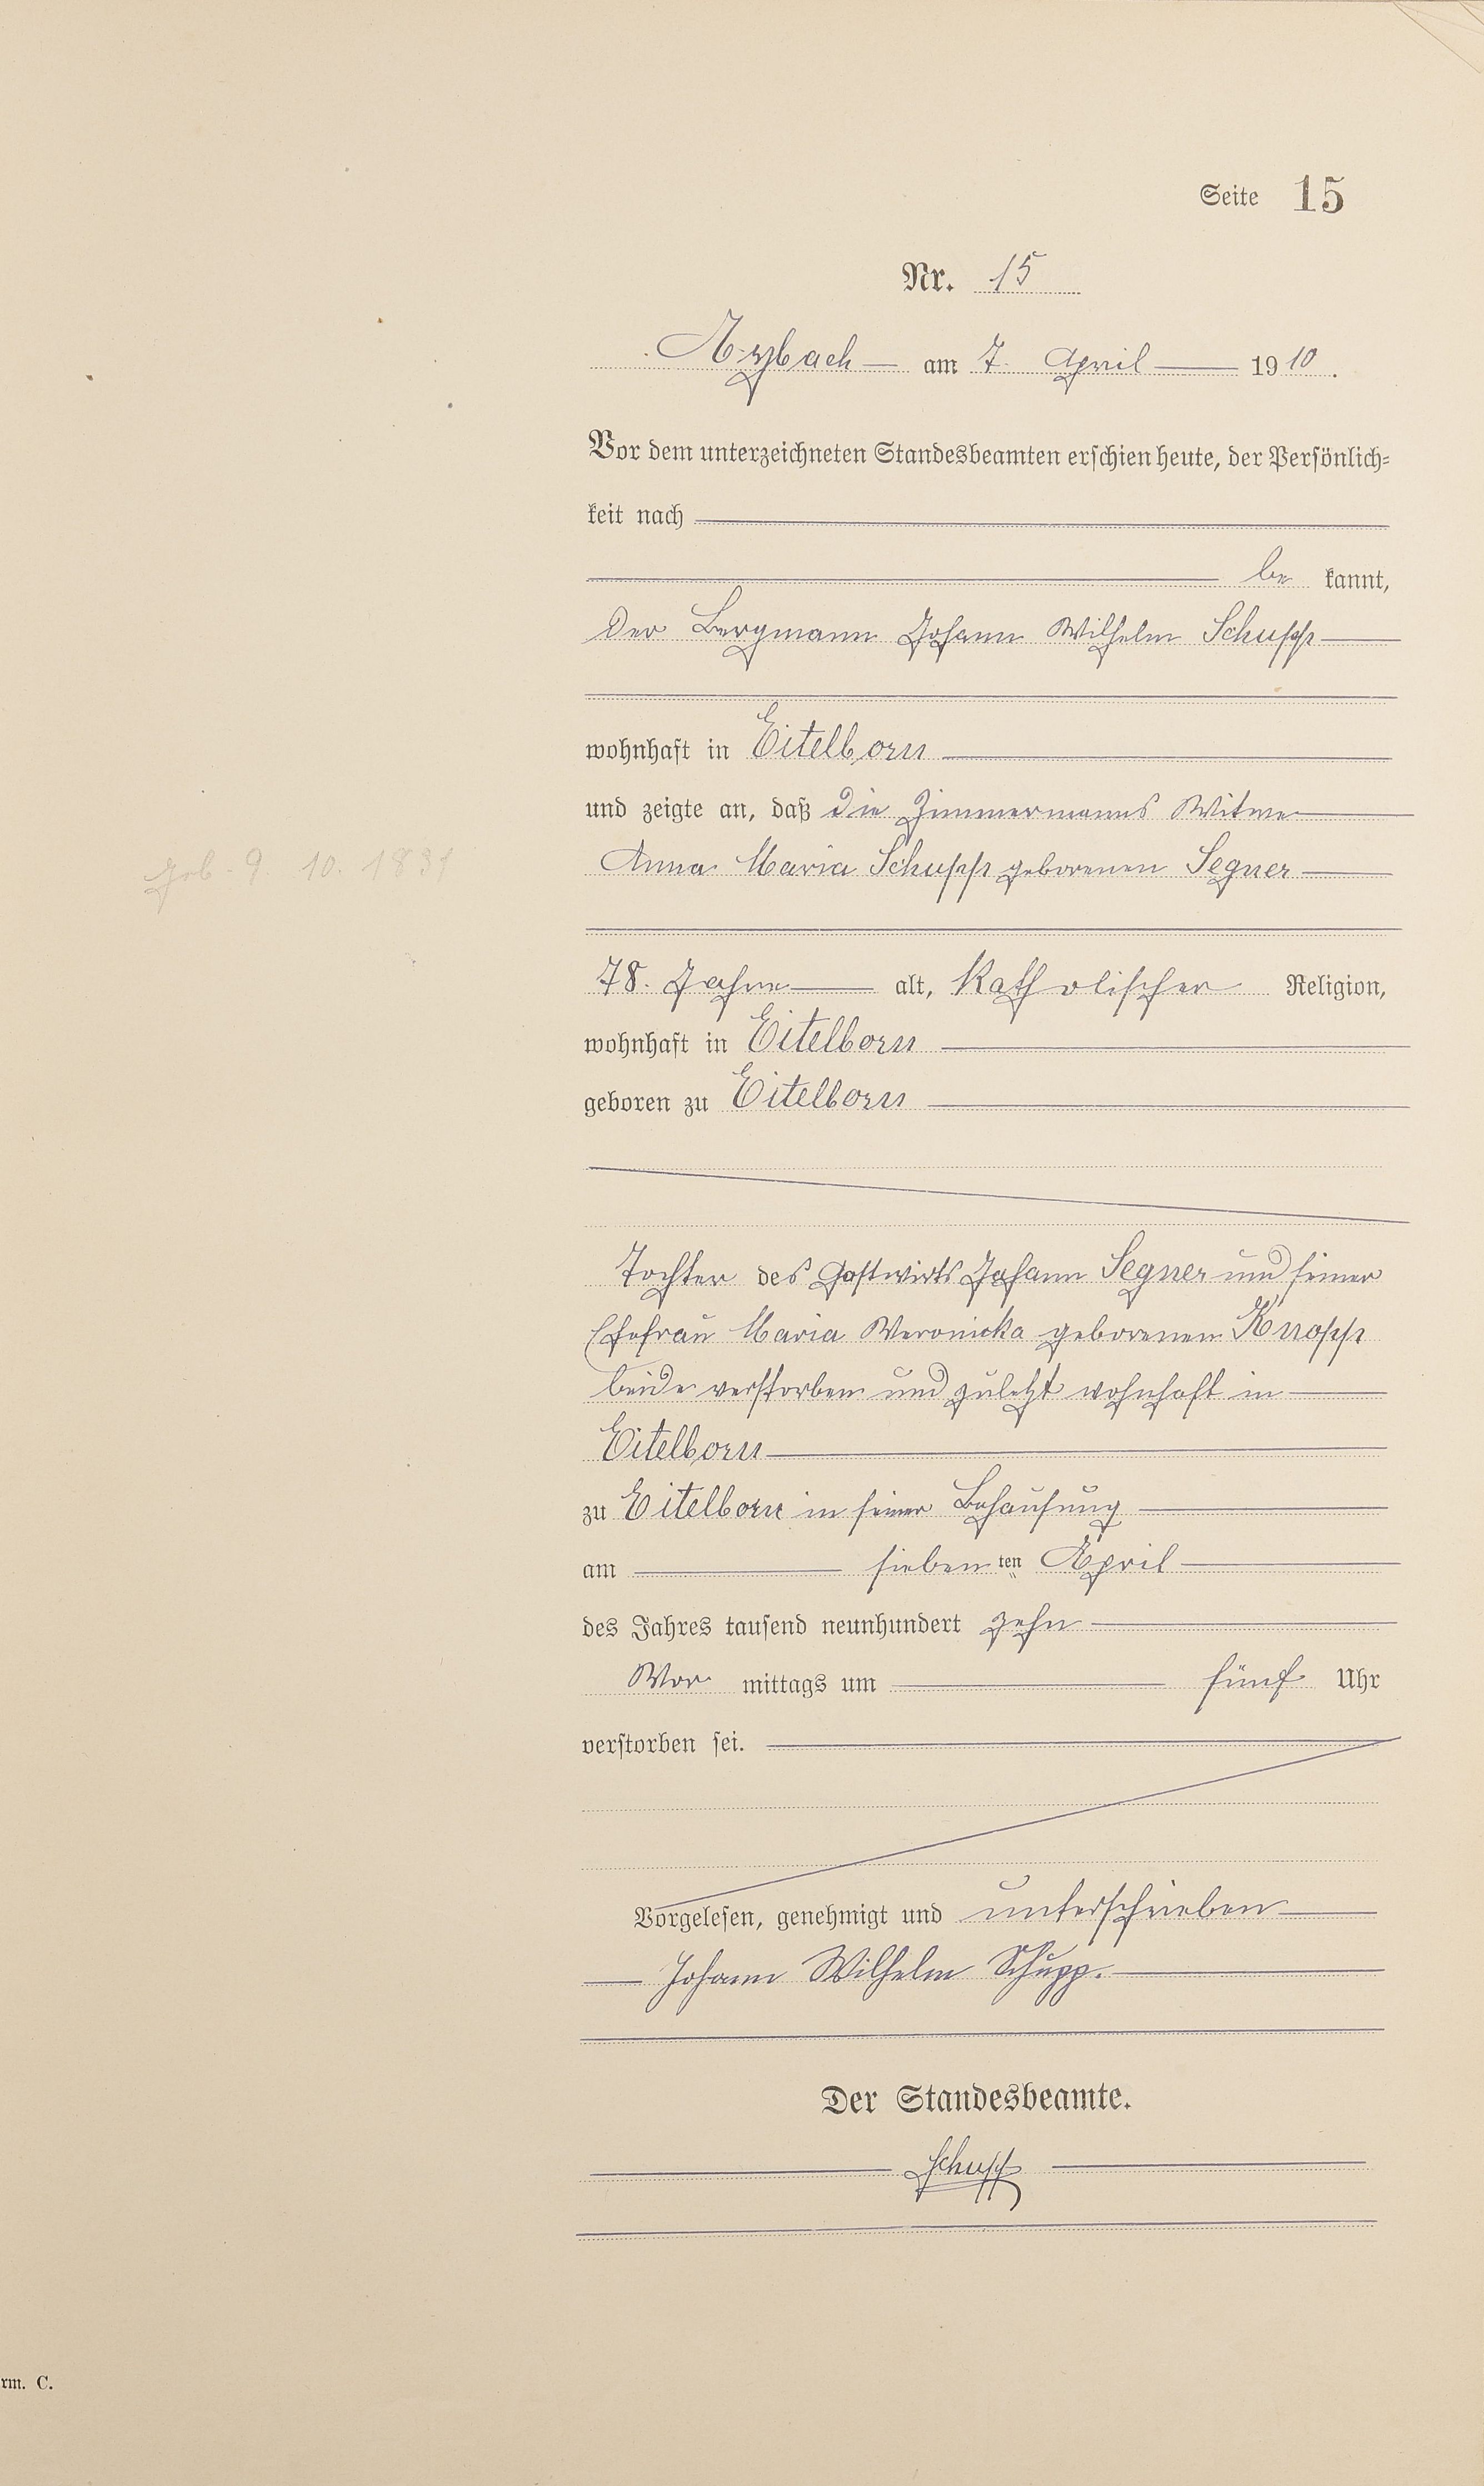 Seite 15
Nr. 15
Arzbach am 7. April 1910.
Vor dem unterzeichneten Standesbeamten erschien heute, der Persönlich-
keit nach
be kannt,
der Bergmann Johann Wilhelm Schupp
wohnhaft in Eitelborn
und zeigte an, daß die Zimmermanns Witwe
geb. 9. 10. 1831
Anna Maria Schupp geborenen Segner
78. Jahre alt, Katholischer Religion,
wohnhaft in Eitelborn
geboren zu Eitelborn
Tochter des Gastwirts Johann Segner und seiner
Ehefrau Maria Weronicka geborenen Knopp
beide verstorben und zuletzt wohnhaft in
Eitelborn
zu Eitelborn in seiner Behausung
am sieben ten April
des Jahres tausend neunhundert zehn
Vor mittags um fünf Uhr
verstorben sei.
Vorgelesen, genehmigt und unterschrieben
Johann Wilhelm Schupp.
Der Standesbeamte.
Schupp
rm. C.